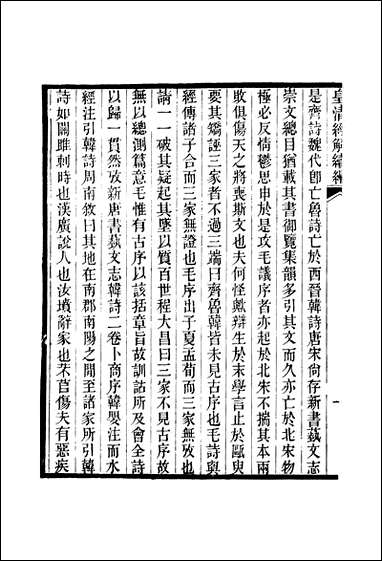 皇清經解續編
是齊詩魏代卽亡魯詩亡於西晉韓詩唐宋尙存新書藝文志
崇文總目猶載其書御覽集韻多引其文而久亦亡於北宋物
極必反情鬱思申於是攻毛議序者亦起於北宋不揣其本兩
敗俱傷天之將喪斯文也夫何怪歟辯生於末學言止於甌臾
要其矯誣三家者不過三端曰齊魯韓皆未見古序也毛詩與
經傳諸子合而三家無證也毛序出子夏孟荀而三家無攷也
請一一破其疑起其墜以質百世程大昌曰三家不見古序故
無以總測篇意毛惟有古序以該括章旨故訓詁所及會全詩
以歸一貫然攷新唐書藝文志韓詩二卷卜商序韓嬰注而水
經注引韓詩周南敘曰其地在南郡南陽之閒至諸家所引韓
詩如關雎刺時也漢廣說人也汝墳辭家也芣苢傷夫有惡疾
一